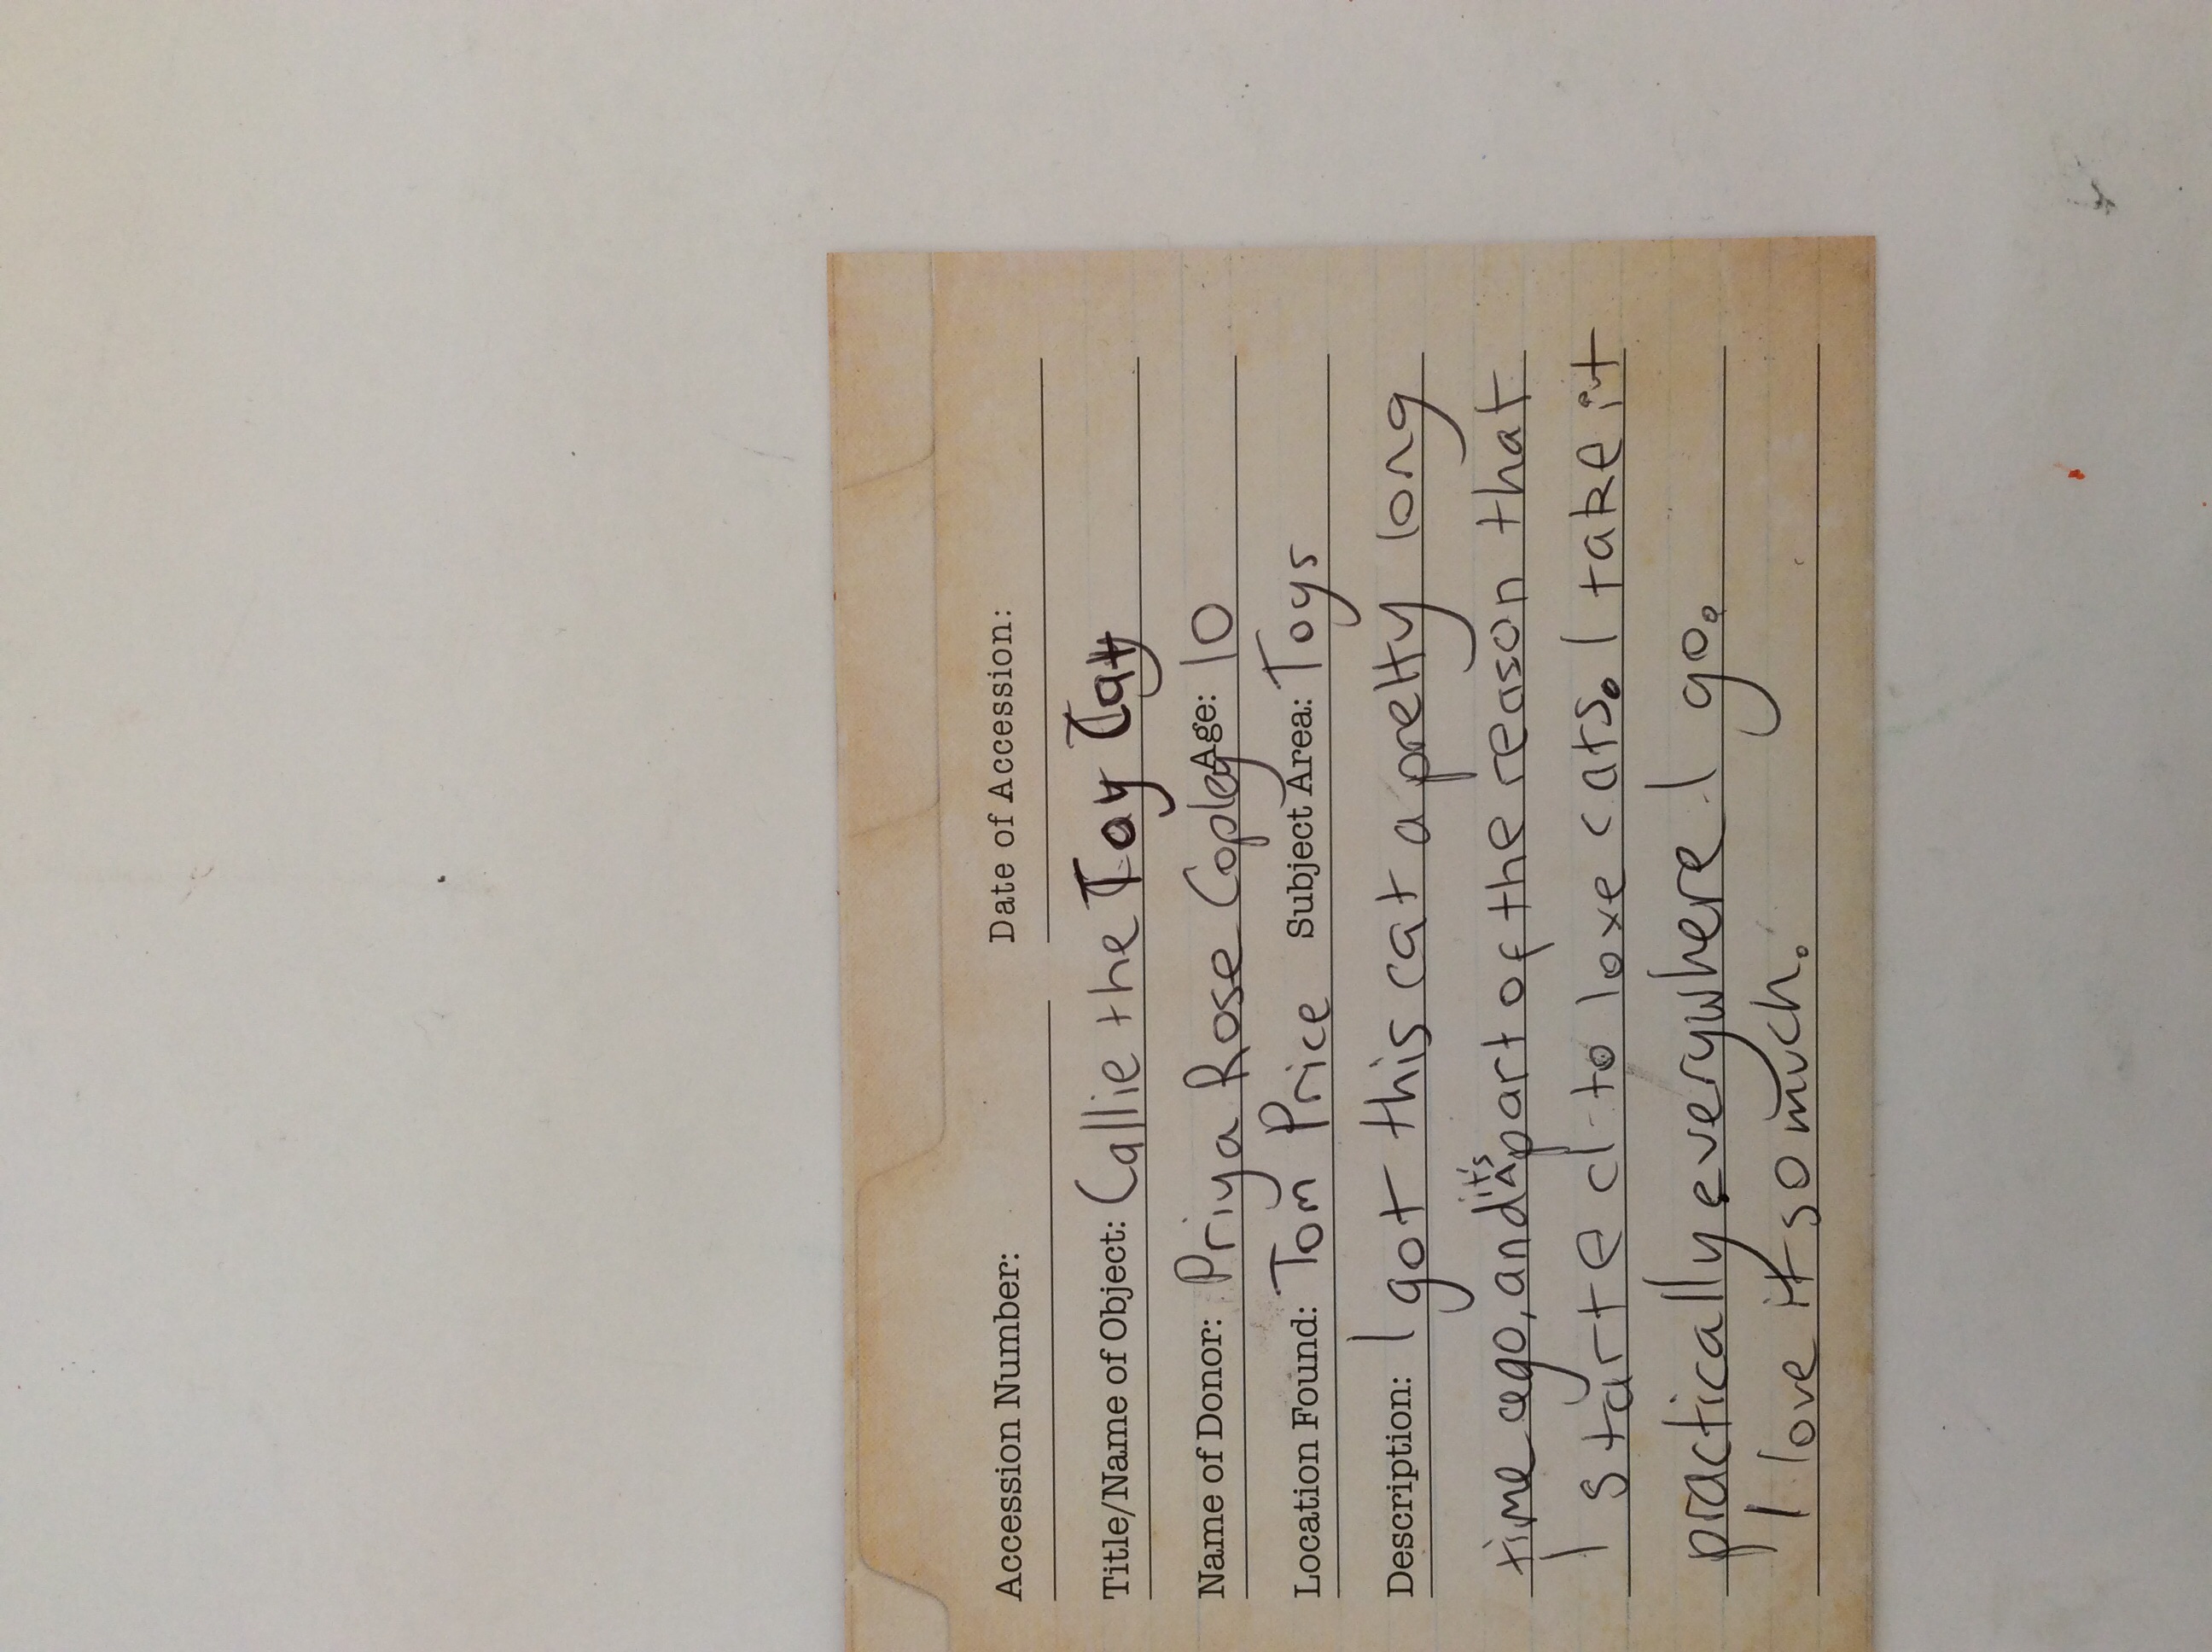 Accession Number: Date of Accession:
Title/Name of Object: Callie the Toy Cat
Name of Donor: Priya Rose Copley Age: 10
Location Found: Tom Price Subject Area: Toys
Description: I got this cat a pretty long
time ago, and it's part of the reason that
I started to love cats. I take it
practically everywhere I go.
I love it so much.